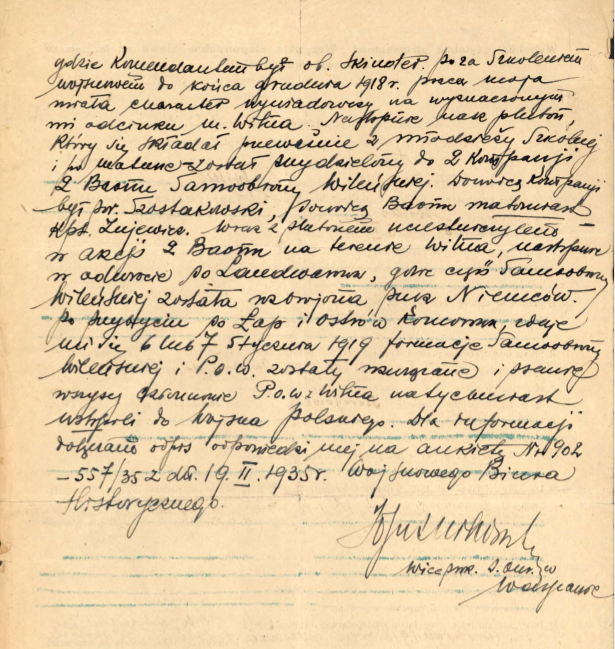 gdzie Komendantem był ob. Skinder. poza Szkoleniem
wojskowem do końca grudnia 1918 r. praca moja
miała charakter wywiadowczy na wyznaczonym
mi odcinku m. Wilna. Następnie nasz pluton,
który się składał przeważnie z młodzieży Szkolnej
i został przydzielony do 2 Kompanji
2 Baonu Samoobrony Wileńskiej. Dowódcą Kompanji
był por. Szostakowski, Dowódcą Baonu natomiast
Kpt. Lujewicz. Wraz z plutonem uczestniczyłem
w akcji 2 Baonu na terenie Wilna, następnie
w odwrocie do Landwarowa, gdzie część Samoobrony
Wileńskiej została rozbrojona przez Niemców.
po przybyciu do Łap i Ostrów Komorowa, zdaje
mi się 6 lub 7 Stycznia 1919 formacje Samoobrony
Wileńskiej i P.O.W. zostały rozwiązane i prawie
wszyscy członkowie P.O.W. z Wilna natychmiast
wstąpili do Wojska Polskiego. Dla informacji
dołączam odpis odpowiedzi mej na ankietę Nr 902
–557/35 z dn. 19.II.1935r. Wojskowego Biura
Historycznego.
Wiceprok. S. Okr. w
Warszawie